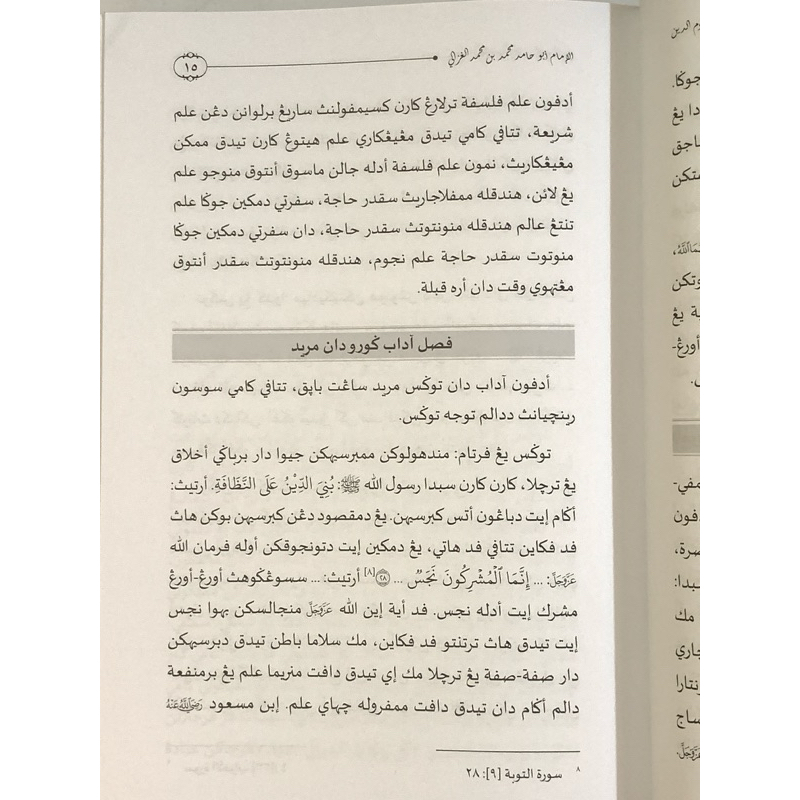 الإمام ابو حامد محمد بن محمد الغزالي
١٥
أدفون علم فلسفة ترلارڠ كارن كسيمفولنڽ ساريڠ برلوانن دڠن علم
شريعة، تتافي كامي تيدق مڠيڠكاري علم هيتوڠ كارن تيدق ممكن
مڠيڠكاريڽ، نمون علم فلسفة أدله جالن ماسوق أنتوق منوجو علم
يڠ لائن، هندقله ممفلاجاريڽ سقدر حاجة، سفرتي دمكين جوݢا علم
تنتڠ عالم هندقله منونتوتڽ سقدر حاجة، دان سفرتي دمكين جوݢا
منوتوت سقدر حاجة علم نجوم، هندقله منونتوتڽ سقدر أنتوق
مڠتهوي وقت دان أره قبلة.
فصل آداب ݢورو دان مريد
أدفون آداب دان توݢس مريد ساڠت باڽق، تتافي كامي سوسون
رينچيانڽ ددالم توجه توݢس.
توݢس يڠ فرتام: مندهولوكن ممبرسيهكن جيوا دار برباݢي أخلاق
يڠ ترچلا، كارن كارن سبدا رسول الله ﷺ: بُنِيَ الدِّيْنُ عَلَى النَّظَافَةِ. أرتيڽ:
أݢام إيت دباڠون أتس كبرسيهن. يڠ دمقصود دڠن كبرسيهن بوكن هاڽ
فد فكاين تتافي فد هاتي، يڠ دمكين إيت دتونجوقكن أوله فرمان الله
عَزَّوَجَلَّ: ... إِنَّمَا ٱلْمُشْرِكُونَ نَجَسٌ ... ۝٢٨[٨] أرتيڽ: ... سسوڠݢوهڽ أورڠ-أورڠ
مشرك إيت أدله نجس. فد أية إين الله عَزَّوَجَلَّ منجالسكن بهوا نجس
إيت تيدق هاڽ ترتنتو فد فكاين، مك سلاما باطن تيدق دبرسيهكن
دار صفة-صفة يڠ ترچلا مك إي تيدق دافت منريما علم يڠ برمنفعة
دالم أݢام دان تيدق دافت ممفروله چهاي علم. إبن مسعود رَضِيَ اللَّهُ عَنْهُ
٨ سورة التوبة [٩]: ٢٨